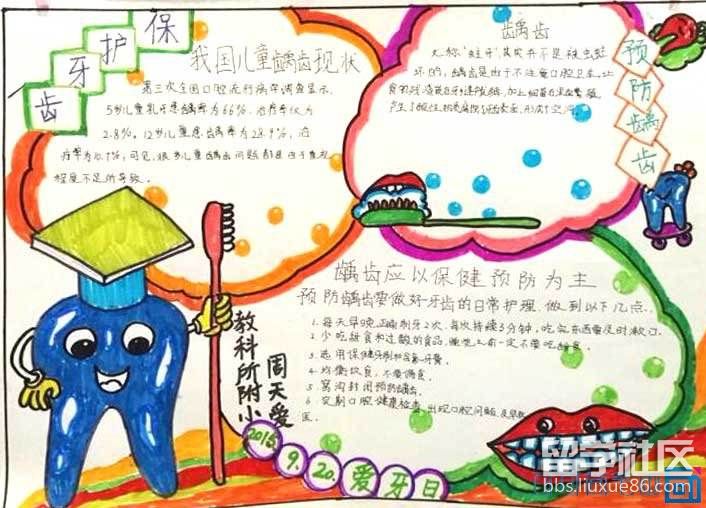 保护牙齿
我国儿童龋齿现状
第三次全国口腔流行病学调查显示,
5岁儿童乳牙患龋率为66%,治疗率仅为
2.8%。12岁儿童患龋率为28.9%,治
疗率为10.7%;可见,很多儿童龋齿问题都是由于重视
程度不足所导致。
龋齿
又称"蛀牙",其实并不是被虫蛀
坏的,龋齿是由于不注重口腔卫生,让
产生了酸性
形成了空洞。
预防龋齿
龋齿应以保健预防为主
预防龋齿要做好牙齿的日常护理,做到以下几点.
1. 每天早晚正确刷牙2次,每次持续3分钟,吃完东西需及时漱口.
2. 少吃甜食和过酸的食品,睡觉之前一定不要吃甜食.
3. 选用保健牙刷和含氟牙膏.
4. 均衡饮食,不要偏食.
5. 窝沟封闭预防龋齿.
6. 定期口腔健康检查,出现口腔问题及早就
医.
教科所附小
周天爱
2015.9.20.爱牙日
留学社区
bbs.liuxue86.com